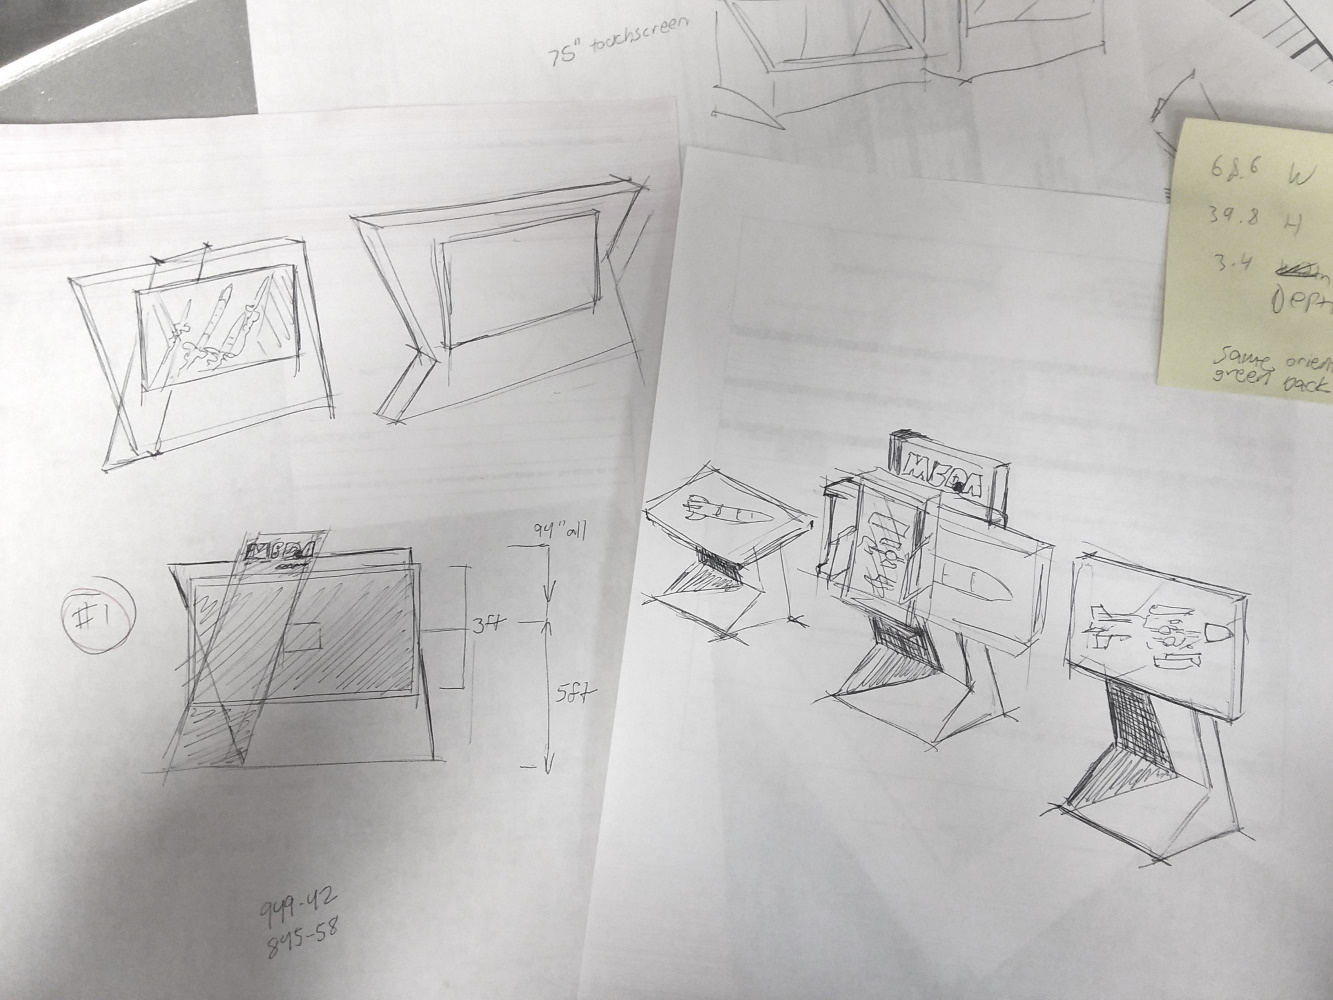 75" touchscreen
68.6 W
39.8 H
3.4
Dept
same orien
green back
MEDA
94" all
MEDA
#1
3ft
5ft
949-42
845-58